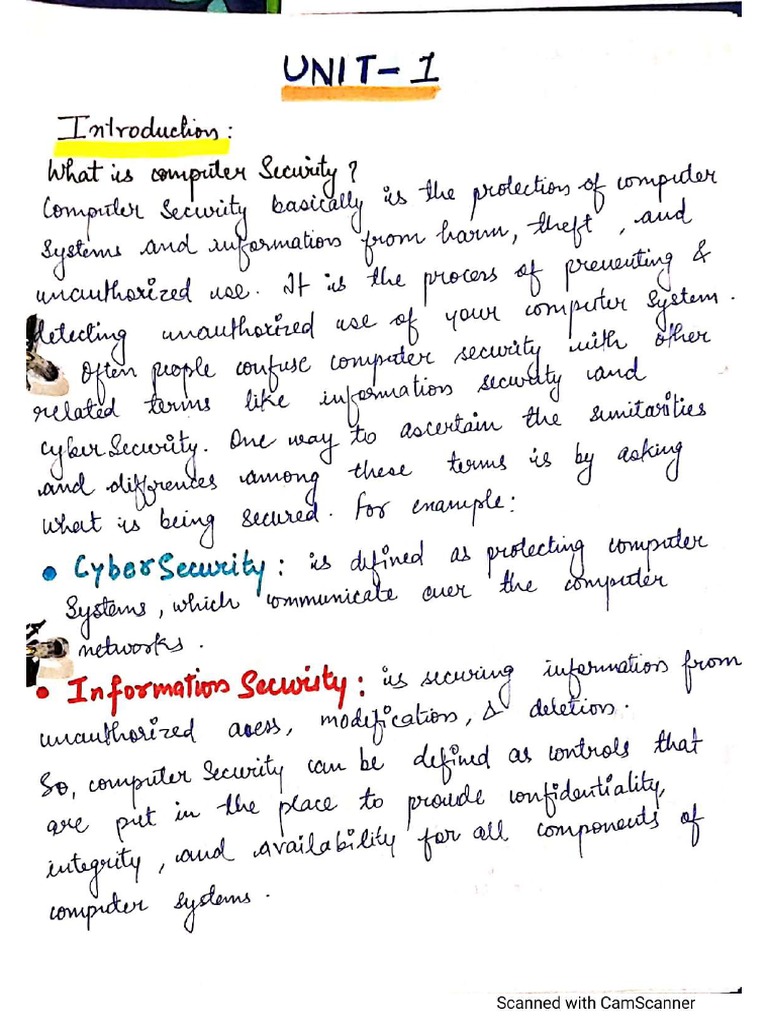 UNIT-1
Introduction:
What is computer Security?
Computer Security basically is the protection of computer
Systems and information from harm, theft, and
unauthorized use. It is the process of preventing &
detecting unauthorized use of your computer system.
Often people confuse computer security with other
related terms like information security and
cyberSecurity. One way to ascertain the similarities
and differences among these terms is by asking
what is being secured. For example:
• CyberSecurity: is defined as protecting computer
Systems, which communicate over the computer
networks.
• Information Security: is securing information from
unauthorized acess, modification, & deletion.
So, computer Security can be defined as controls that
are put in the place to provide confidentiality,
integrity, and availability for all components of
computer systems.
Scanned with CamScanner